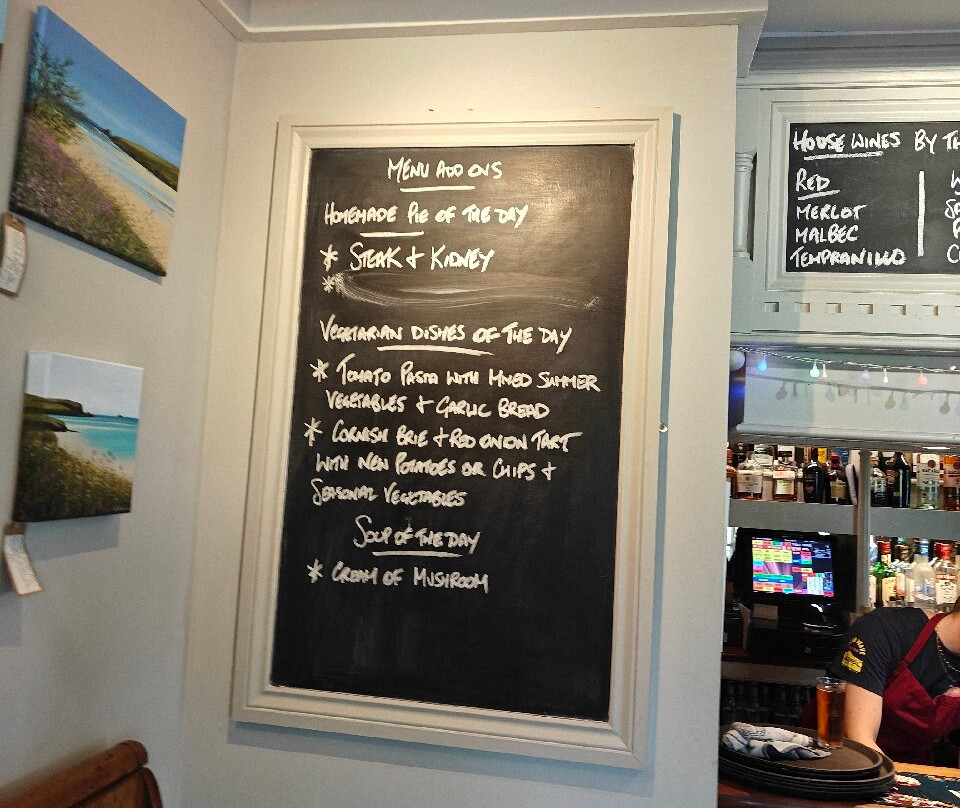 MENU ADD ONS
HOMEMADE PIE OF THE DAY
* STEAK & KIDNEY
*
VEGETARIAN DISHES OF THE DAY
* TOMATO PASTA WITH MIXED SUMMER
VEGETABLES & GARLIC BREAD
* CORNISH BRIE & RED ONION TART
WITH NEW POTATOES OR CHIPS &
SEASONAL VEGETABLES
SOUP OF THE DAY
* CREAM OF MUSHROOM
HOUSE WINES BY
RED
MERLOT
MALBEC
TEMPRANILLO